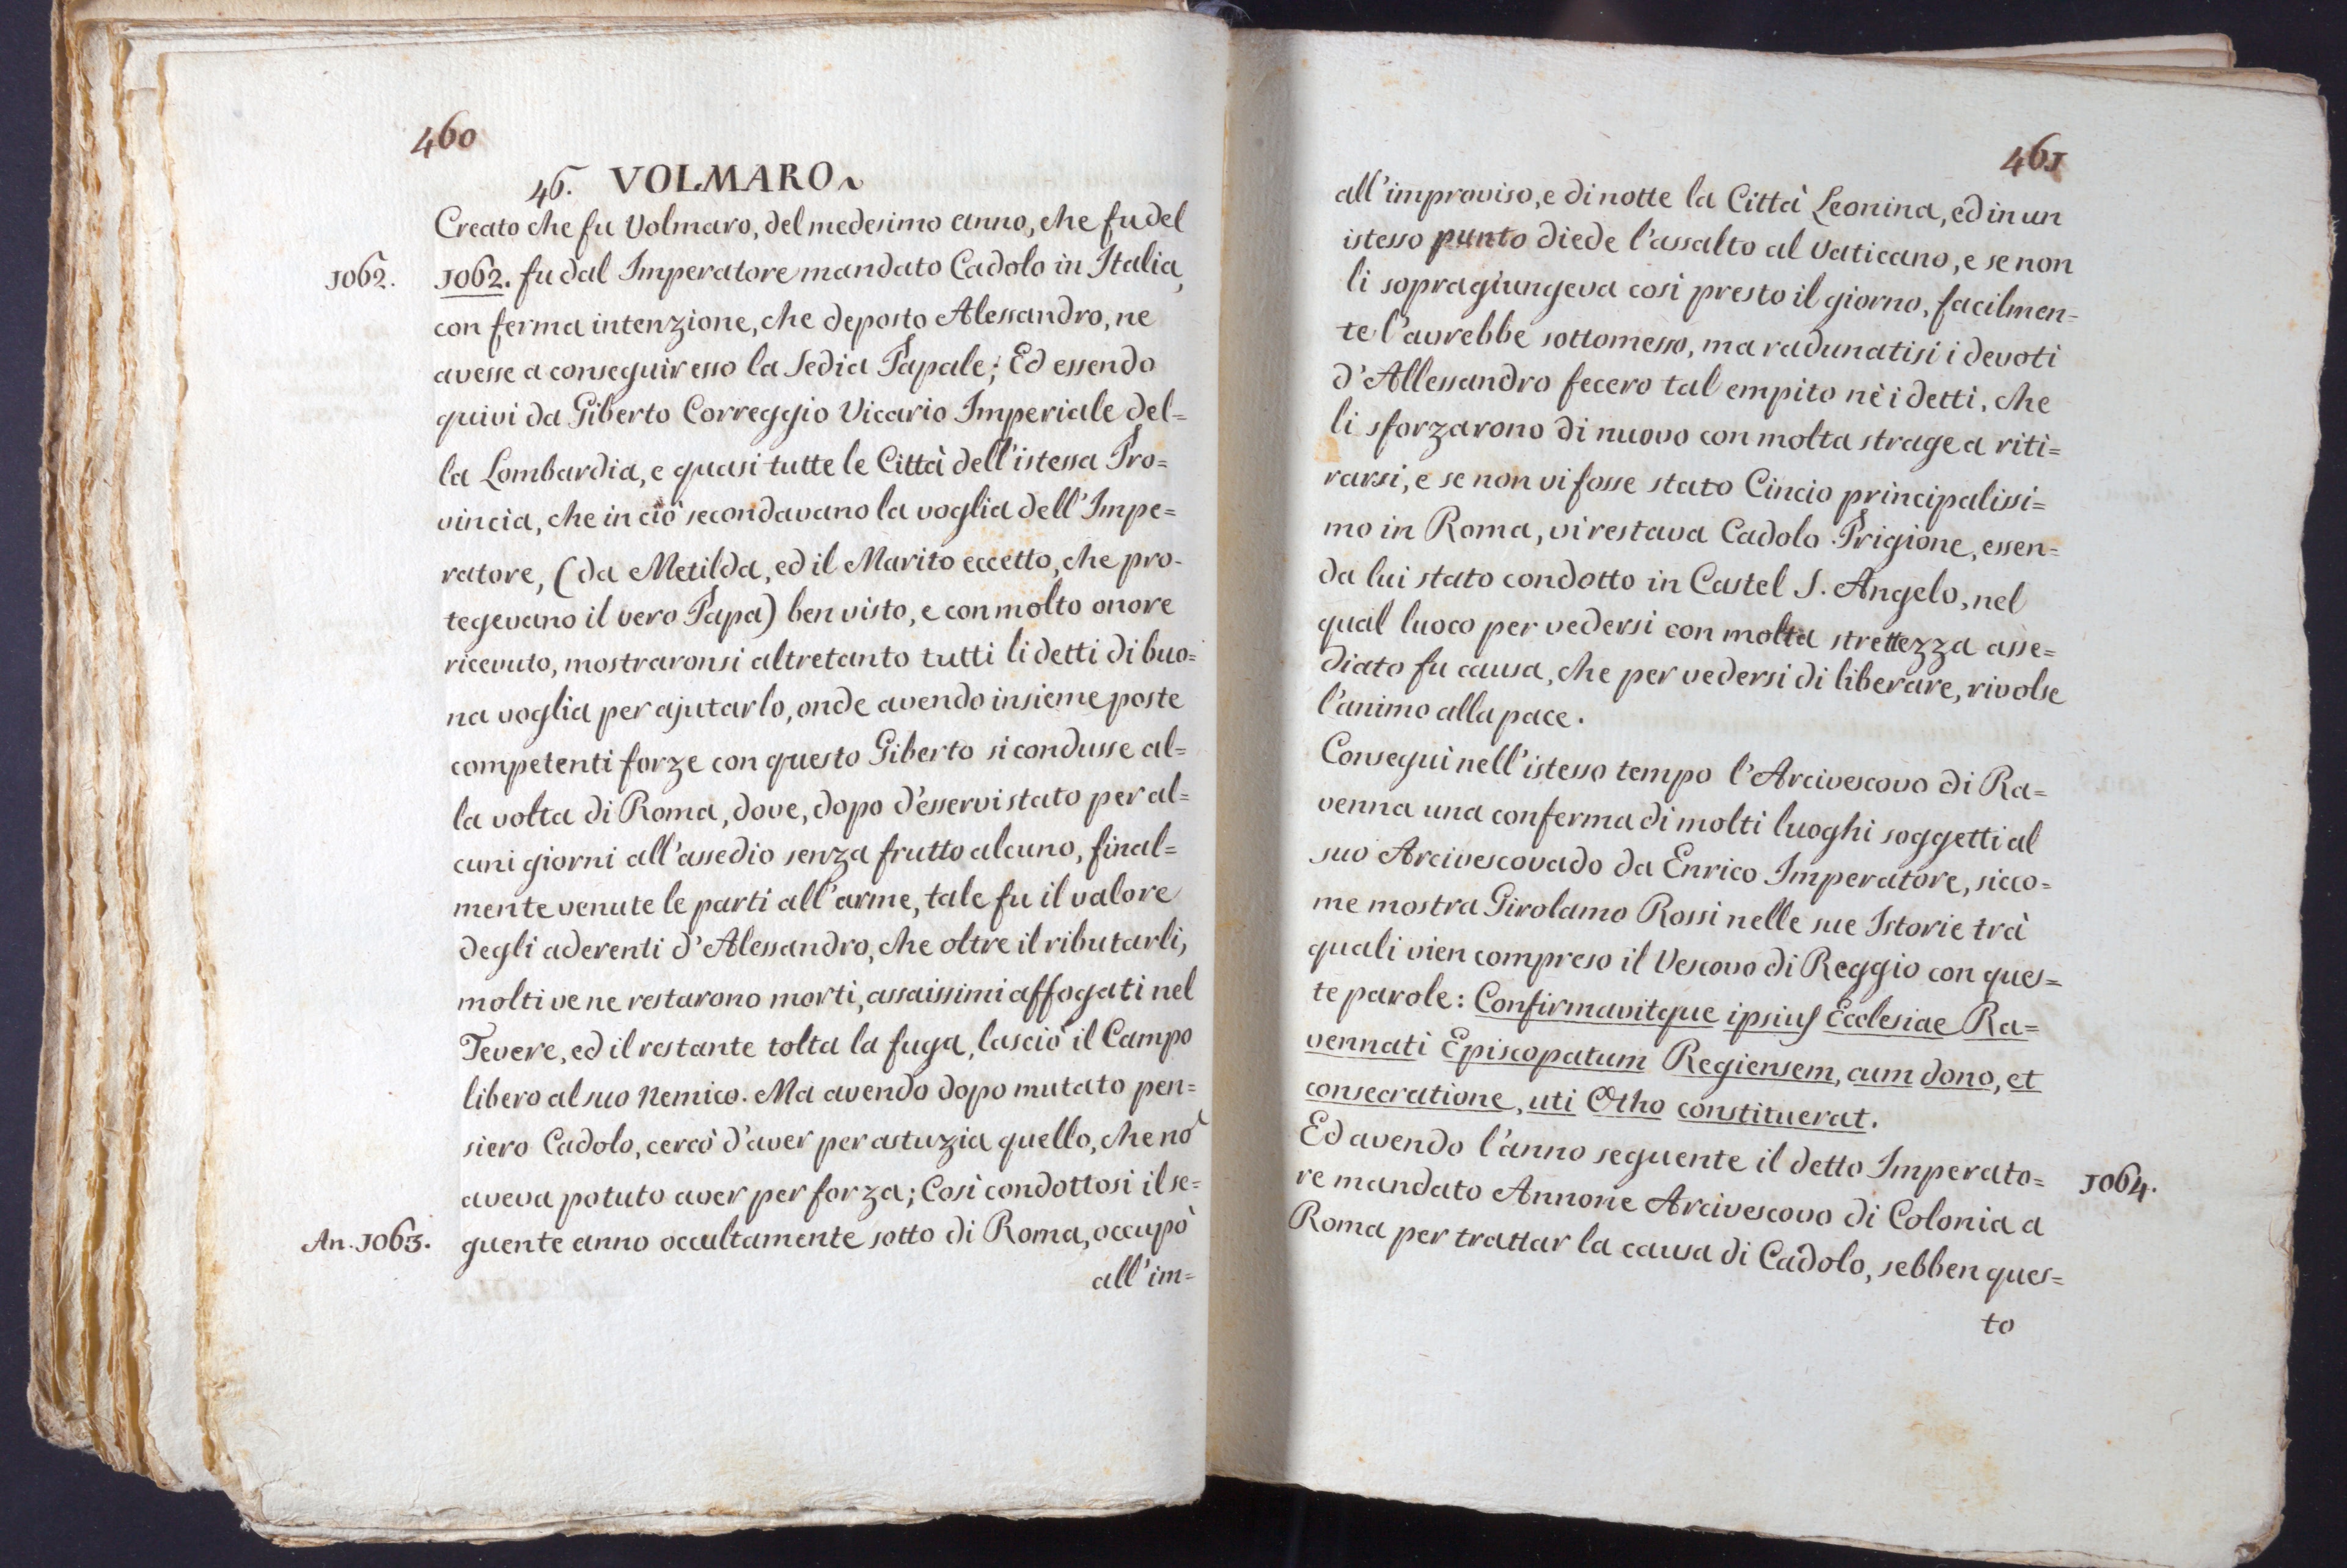 460
46. VOLMARO
Creato che fu Volmaro, del medesimo anno, che fu del
1062.
1062. fu dal Imperatore mandato Cadolo in Italia,
con ferma intenzione, che deposto Alessandro, ne
avesse a conseguir esso la Sedia Papale; Ed essendo
quivi da Giberto Correggio Vicario Imperiale del=
la Lombardia, e quasi tutte le Città dell'istessa Pro=
vincia, che in ciò secondavano la voglia dell'Impe=
ratore, (da Metilda, ed il Marito eccetto, che pro-
tegevano il vero Papa) ben visto, e con molto onore
ricevuto, mostraronsi altretanto tutti li detti di buo=
na voglia per ajutarlo, onde avendo insieme poste
competenti forze con questo Giberto si condusse al=
la volta di Roma, dove, dopo d'esservi stato per al=
cuni giorni all'assedio senza frutto alcuno, final=
mente venute le parti all'arme, tale fu il valore
degli aderenti d'Alessandro, che oltre il ributarli,
molti ve ne restarono morti, assaissimi affogati nel
Tevere, ed il restante tolta la fuga, lasciò il Campo
libero al suo Nemico. Ma avendo dopo mutato pen=
siero Cadolo, cercò d'aver per astuzia quello, che nō
aveva potuto aver per forza; Così condottosi il se=
An. 1063.
guente anno occultamente sotto di Roma, occupò
all'im=
461
all'improviso, e di notte la Città Leonina, ed in un
istesso punto diede l'assalto al Vaticano, e se non
li sopragiungeva così presto il giorno, facilmen=
te l'avrebbe sottomesso, ma radunatisi i devoti
d'Allessandro fecero tal empito nè i detti, che
li sforzarono di nuovo con molta strage a riti=
rarsi, e se non vi fosse stato Cincio principalissi=
mo in Roma, vi restava Cadolo Prigione, essen=
da lui stato condotto in Castel S. Angelo, nel
qual luoco per vedersi con molta strettezza asse=
diato fu causa, che per vedersi di liberare, rivolse
l'animo alla pace.
Conseguì nell'istesso tempo l'Arcivescovo di Ra=
venna una conferma di molti luoghi soggetti al
suo Arcivescovado da Enrico Imperatore, sicco=
me mostra Girolamo Rossi nelle sue Istorie trà
quali vien compreso il Vescovo di Reggio con ques=
te parole: Confirmavitque ipsius Ecclesiae Ra=
vennati Episcopatum Regiensem, cum dono, et
consecratione, uti Otho constituerat.
Ed avendo l'anno seguente il detto Imperato=
1064.
re mandato Annone Arcivescovo di Colonia a
Roma per trattar la causa di Cadolo, sebben ques=
to